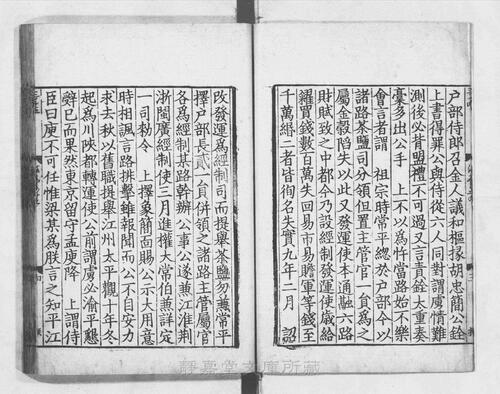 户部侍郎召金人議和樞掾胡忠簡公銓
上書得罪公與侍從六人同對謂虜情難
測後必背盟禮不可過又言責銓太重奏
藁多出公手　上不以為忤當路始不樂
會言者謂　祖宗時常平總於户部今以
諸路茶鹽司分領但置主管官一員為之
屬金穀陷失以此又發運使本通融六路
財賦致之中都今乃設經制發運使歳給
糴買錢數百萬失回易市易贍軍等錢至
千萬緡二者皆徇名失實九年二月　詔
改發運為經制司而提舉茶鹽勿兼常平
擇户部長貳一員併領之諸路主管屬官
各為經制某路幹辦公事公遂兼江淮荆
浙閩廣經制使三月進權大常伯兼詳定
一司勑令　上擇象簡面賜公示大用意
時相諷言路排擊雖報聞而公不自安力
求去秋以舊職提舉江州太平觀十年冬
起為川陜都轉運使公前謂虜必渝平懇
辭已而果然東京留守孟庾降　上謂侍
臣曰庾不可任惟梁某為朕言之知平江
靜嘉堂文庫所藏